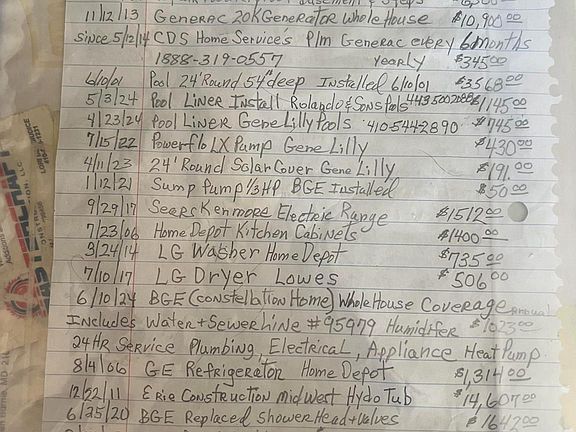 11/12/13 Generac 20K Generator Whole House $10,900.00
since 5/2/14 CDS Home Service's P/m Generac every 6months
1888-319-0557 yearly $345.00
6/10/01 Pool 24' Round 54" deep Installed 6/10/01 $3568.00
5/3/24 Pool Liner Install Rolando & Sons Pools 4435002088 $1145.00
4/23/24 Pool Liner Gene Lilly Pools 410-544-2890 $745.00
7/15/22 Powerflo LX Pump Gene Lilly $430.00
4/11/23 24' Round Solar Cover Gene Lilly $191.00
1/12/21 Sump Pump 1/3 HP BGE Installed $50.00
9/29/17 Sears Kenmore Electric Range $1512.00
7/23/06 Home Depot Kitchen Cabinets $1400.00
3/24/14 LG Washer Home Depot $735.00
7/10/17 LG Dryer Lowes $506.00
6/10/24 BGE (Constellation Home) Whole House Coverage Annual
Includes Water + Sewer Line #95979 Humidifer $1023.00
24HR Service Plumbing, Electrical, Appliance Heat Pump
8/4/06 GE Refrigerator Home Depot $1,314.00
12/22/11 Erie Construction Midwest Hydo Tub $14,607.00
6/25/20 BGE Replaced Shower Head + Valves $1642.00